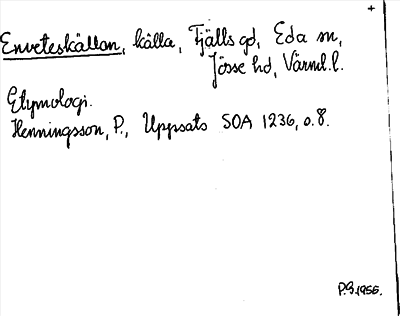 +
Enveteskällan, källa, Fjälls gd, Eda sn,
Jösse hd, Värml. l.
Etymologi.
Henningsson, P., Uppsats SOA 1236, s. 8.
P.G. 1956.